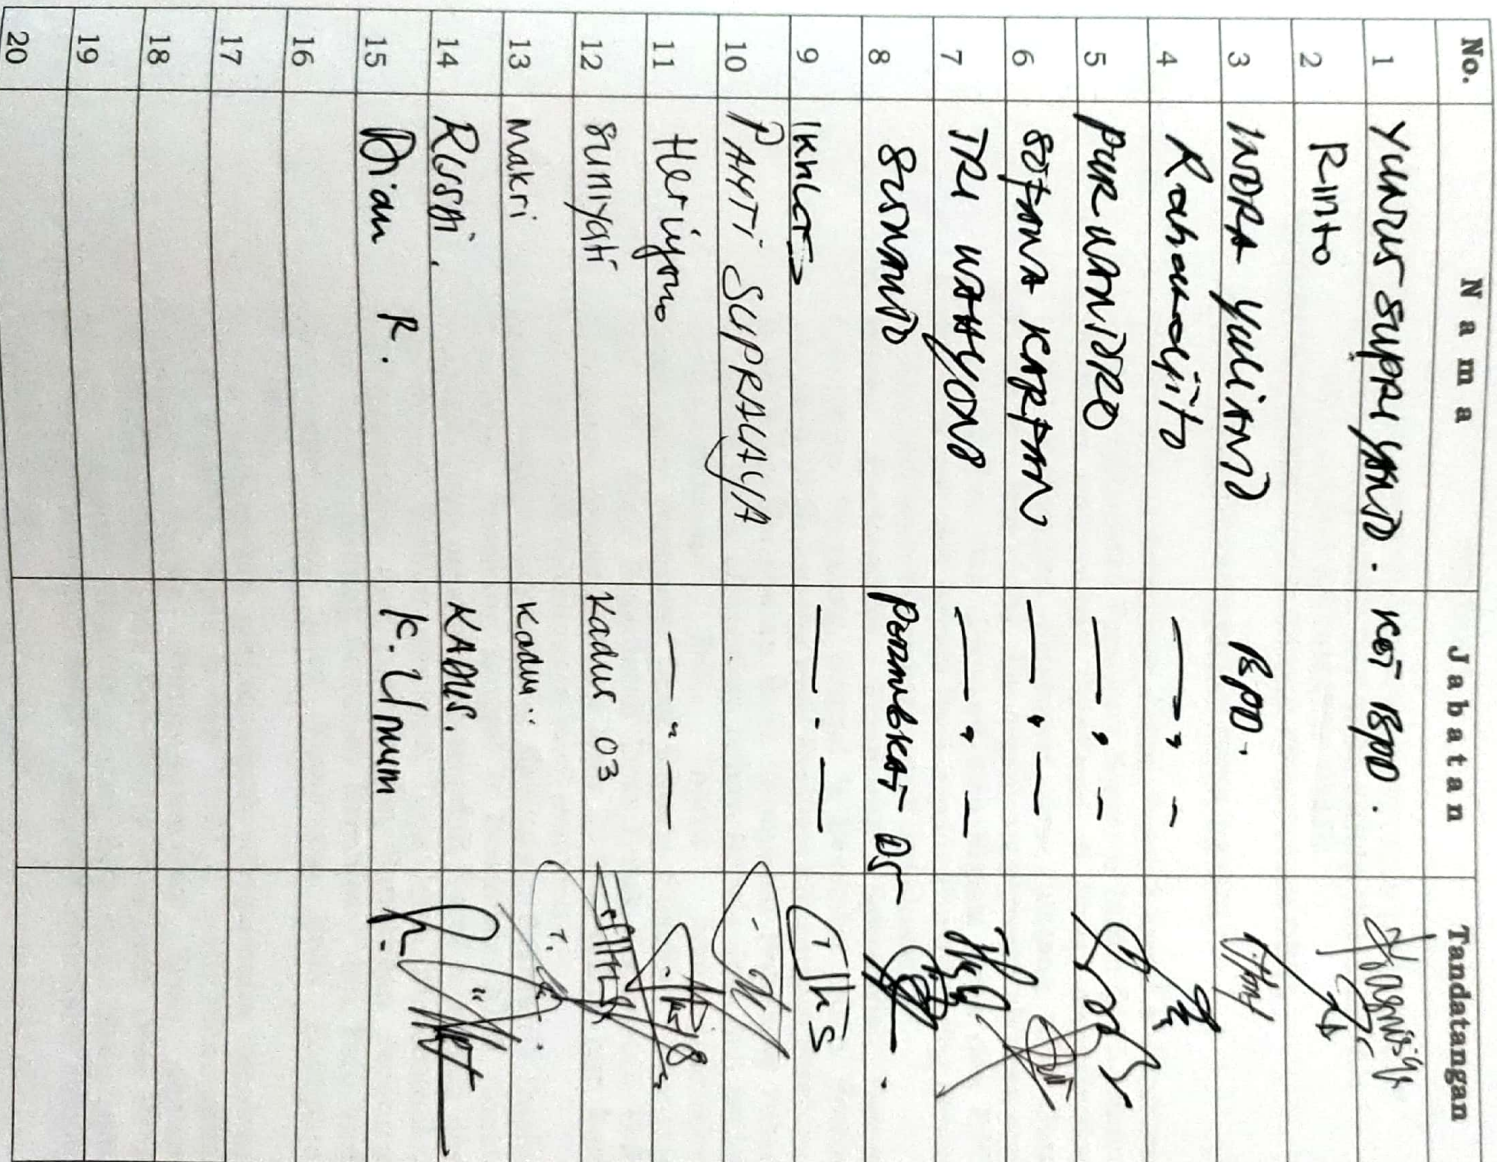 No. Nama Jabatan Tandatangan
1 YUNUS SUPRIYANTO. KET BPD.
2 Rinto
3 INDRA YULIANTO BPD.
4 Raharjito — " -
5 PURWANTORO — " -
6 SOFANA KARFAN — " —
7 TRI WAHYONO — " -
8 SUSWANTO Perangkat DS
9 Ikhlas — " —
10 PAMTI SUPRALAYA
11 Heriyono — " —
12 Suniyati Kadus 03
13 Makri Kadus..
14 Rusdi. KADUS.
15 Dian R. K. Umum
16
17
18
19
20